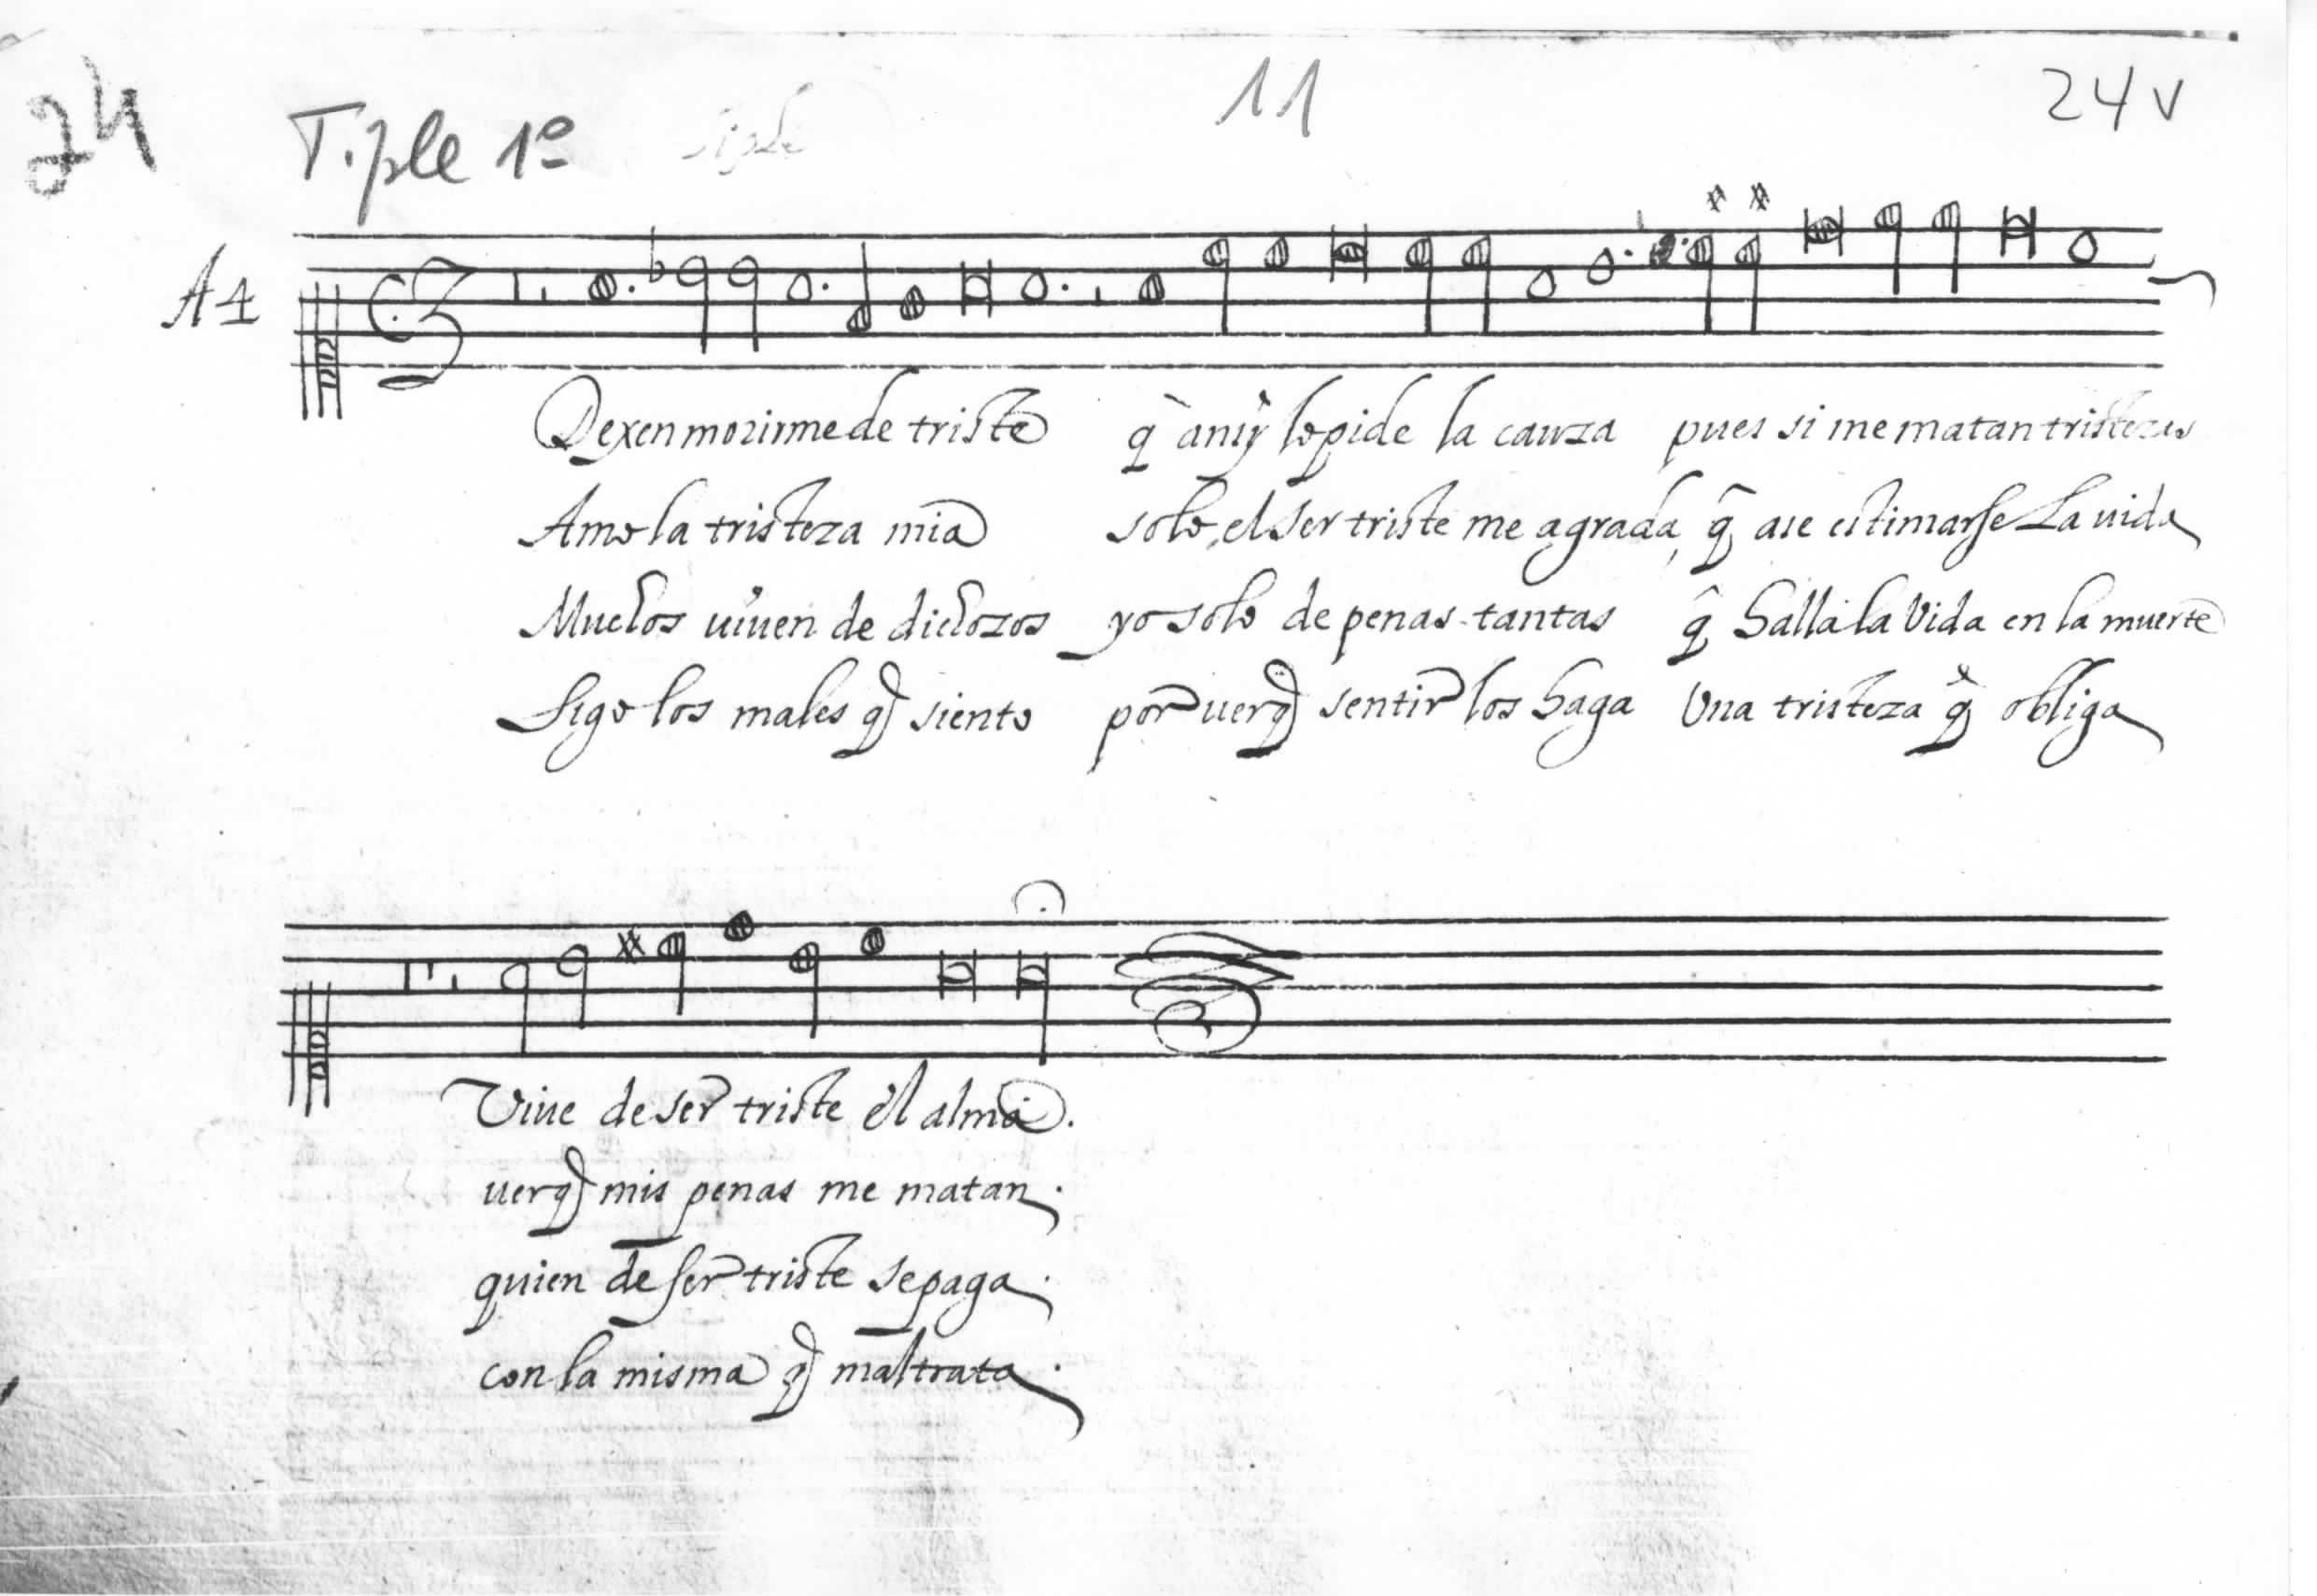 24
Tiple 1º
11
24 v
A 4
Dexen morirme de triste q̃ a my le pide la cauza pues si me matan tristezas
Amo la tristeza mia solo el ser triste me agrada q̃ ase estimarse La uida
Muchos uiuen de dichozos yo solo de penas tantas q̃ halla la Vida en la muerte
Sigo los males q̃ siento por uer q̃ sentir los haga Una tristeza q̃ obliga
Viue de ser triste el alma.
uer q̃ mis penas me matan.
quien de ser triste se paga.
con la misma q̃ maltrata.